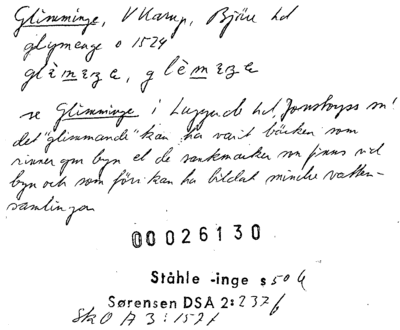 Glimminge, V Karup, Bjäre hd
glymenge o 1524
se Glimminge i Luggude hd, Jonstorps
det "glimmande" kan ha varit bäcken som
rinner gm byn el de sankmarker som finns vid
byn och som förr kan ha bildat mindre vatten-
samlingar
00026130
Ståhle -inge s 50
Sørensen DSA 2:237f
Sk O A 3:152f